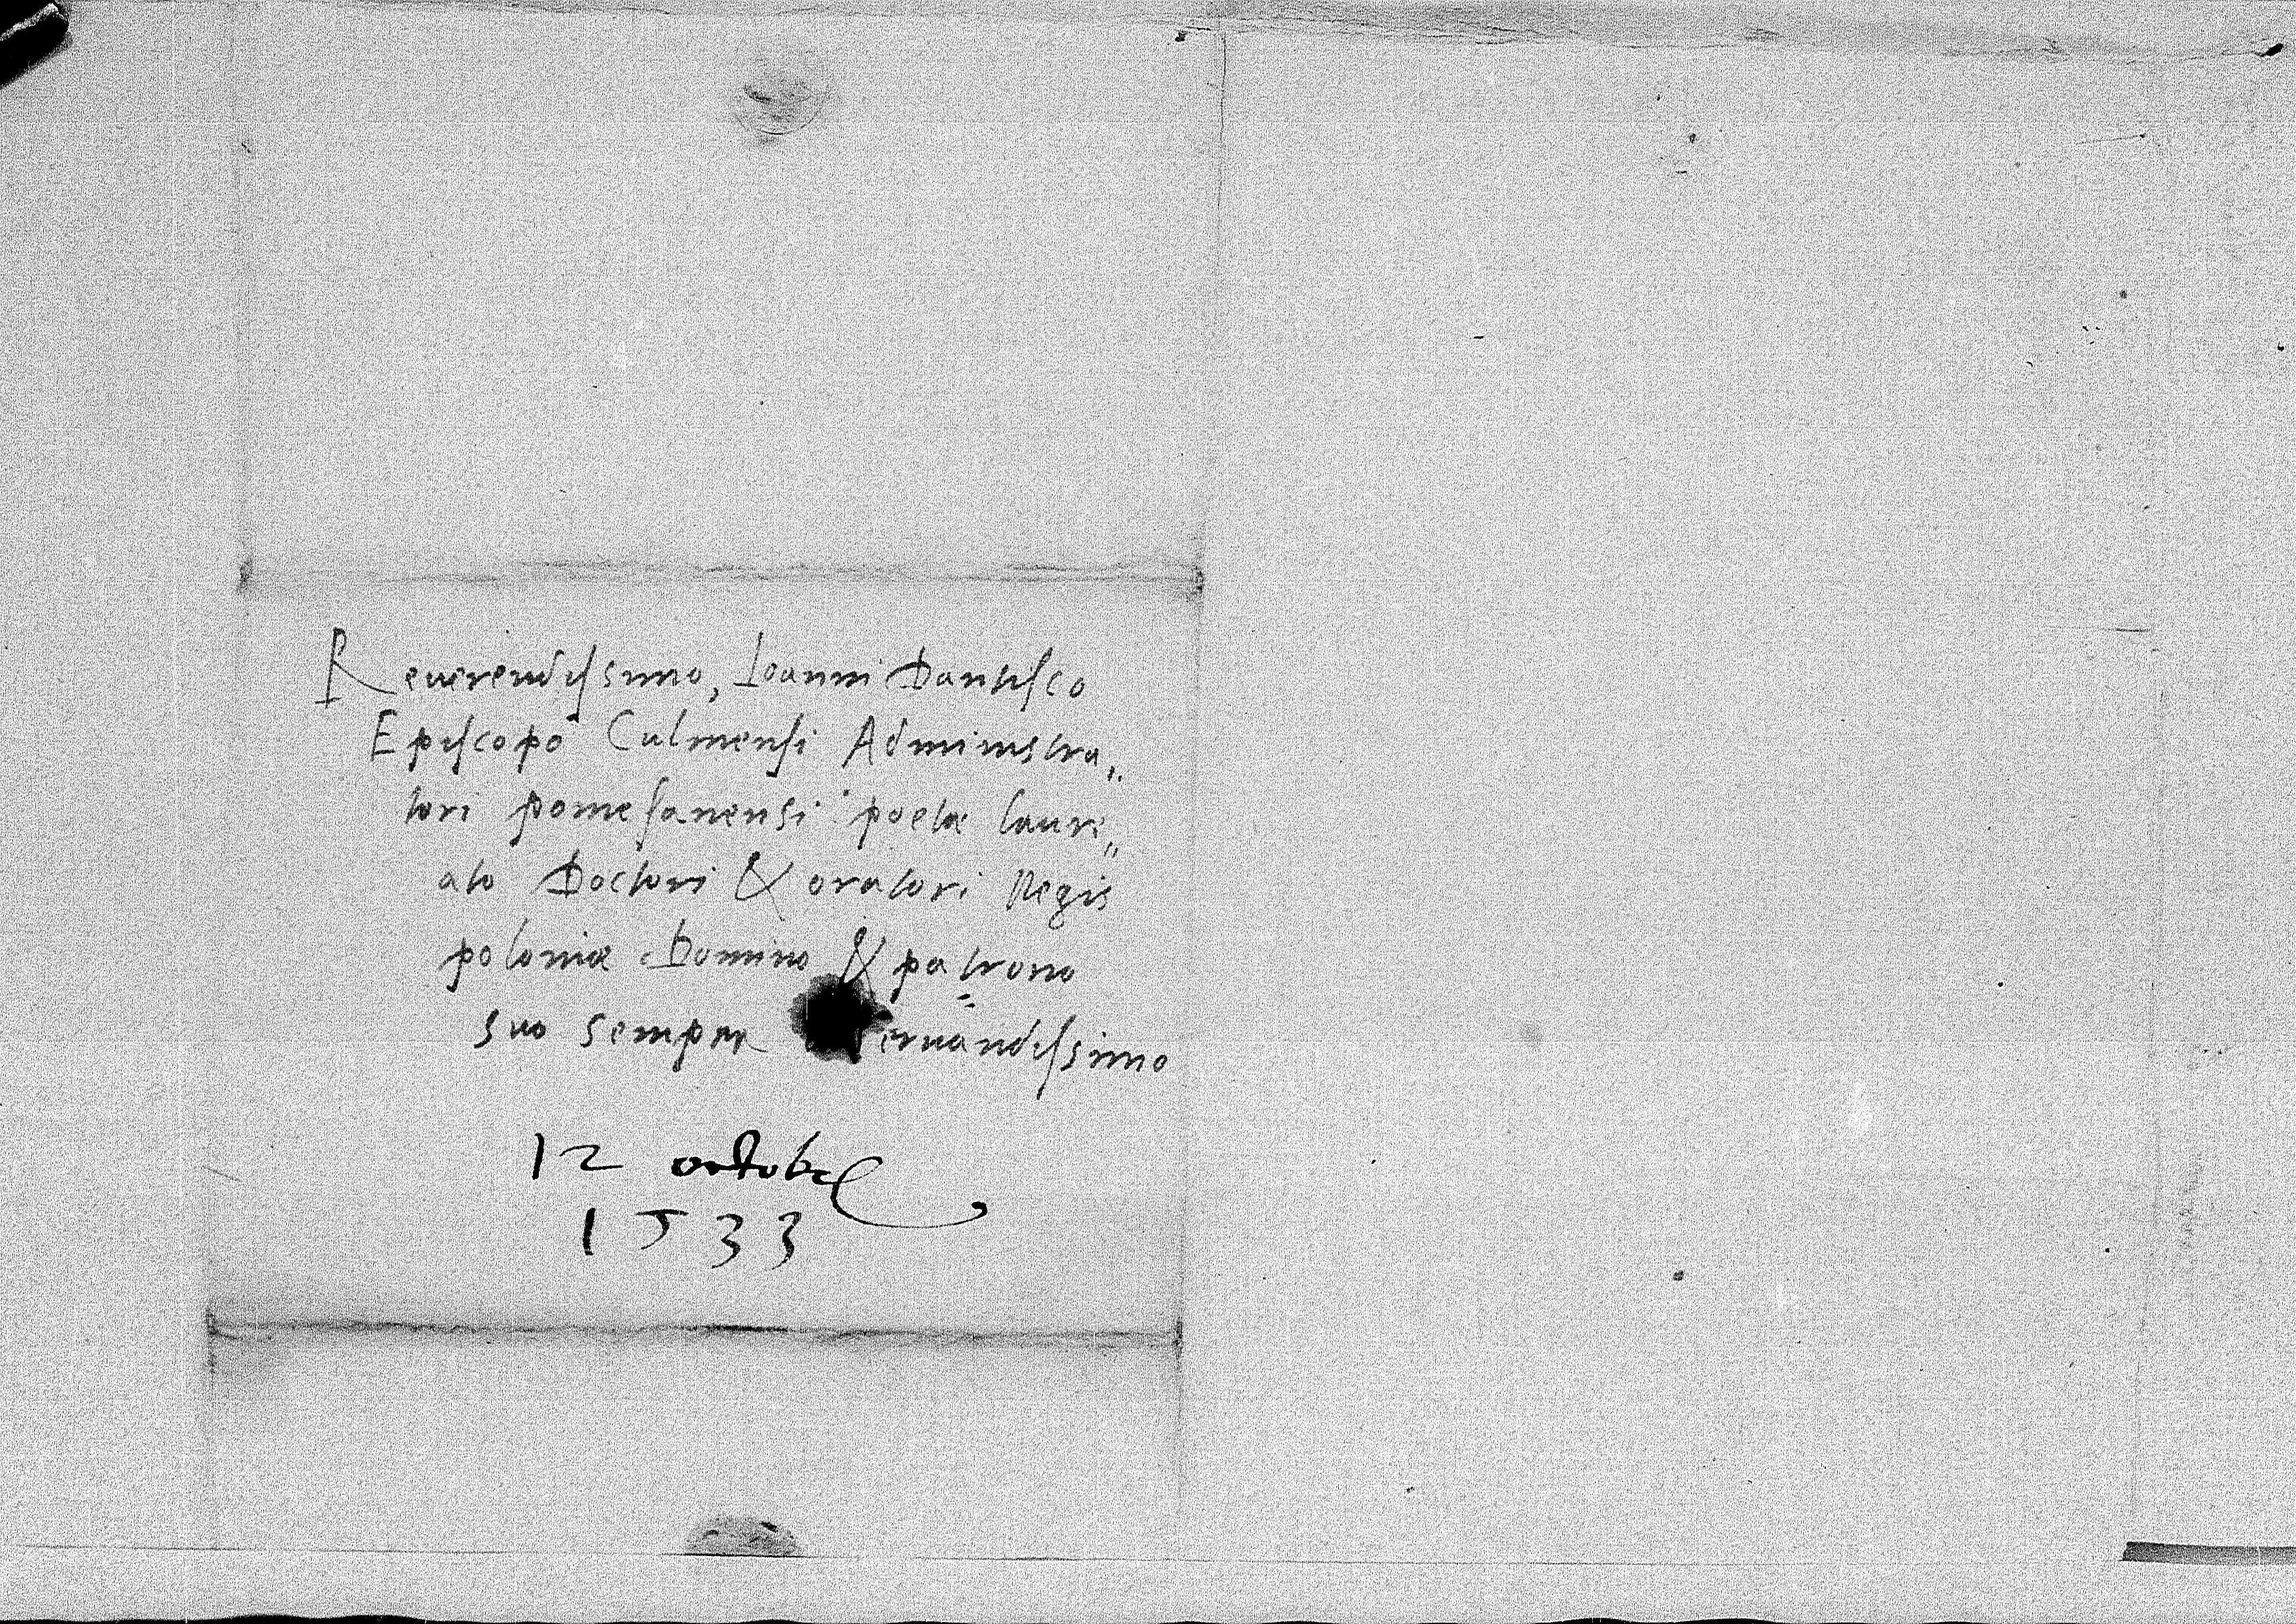 Reverendissimo, Ioanni Dantisco
Episcopo Culmensi Administra„
tori pomesanensi poetæ laure„
ato Doctori & oratori Regis
poloniæ Domino & patrono
suo semper
12 octobr
1533